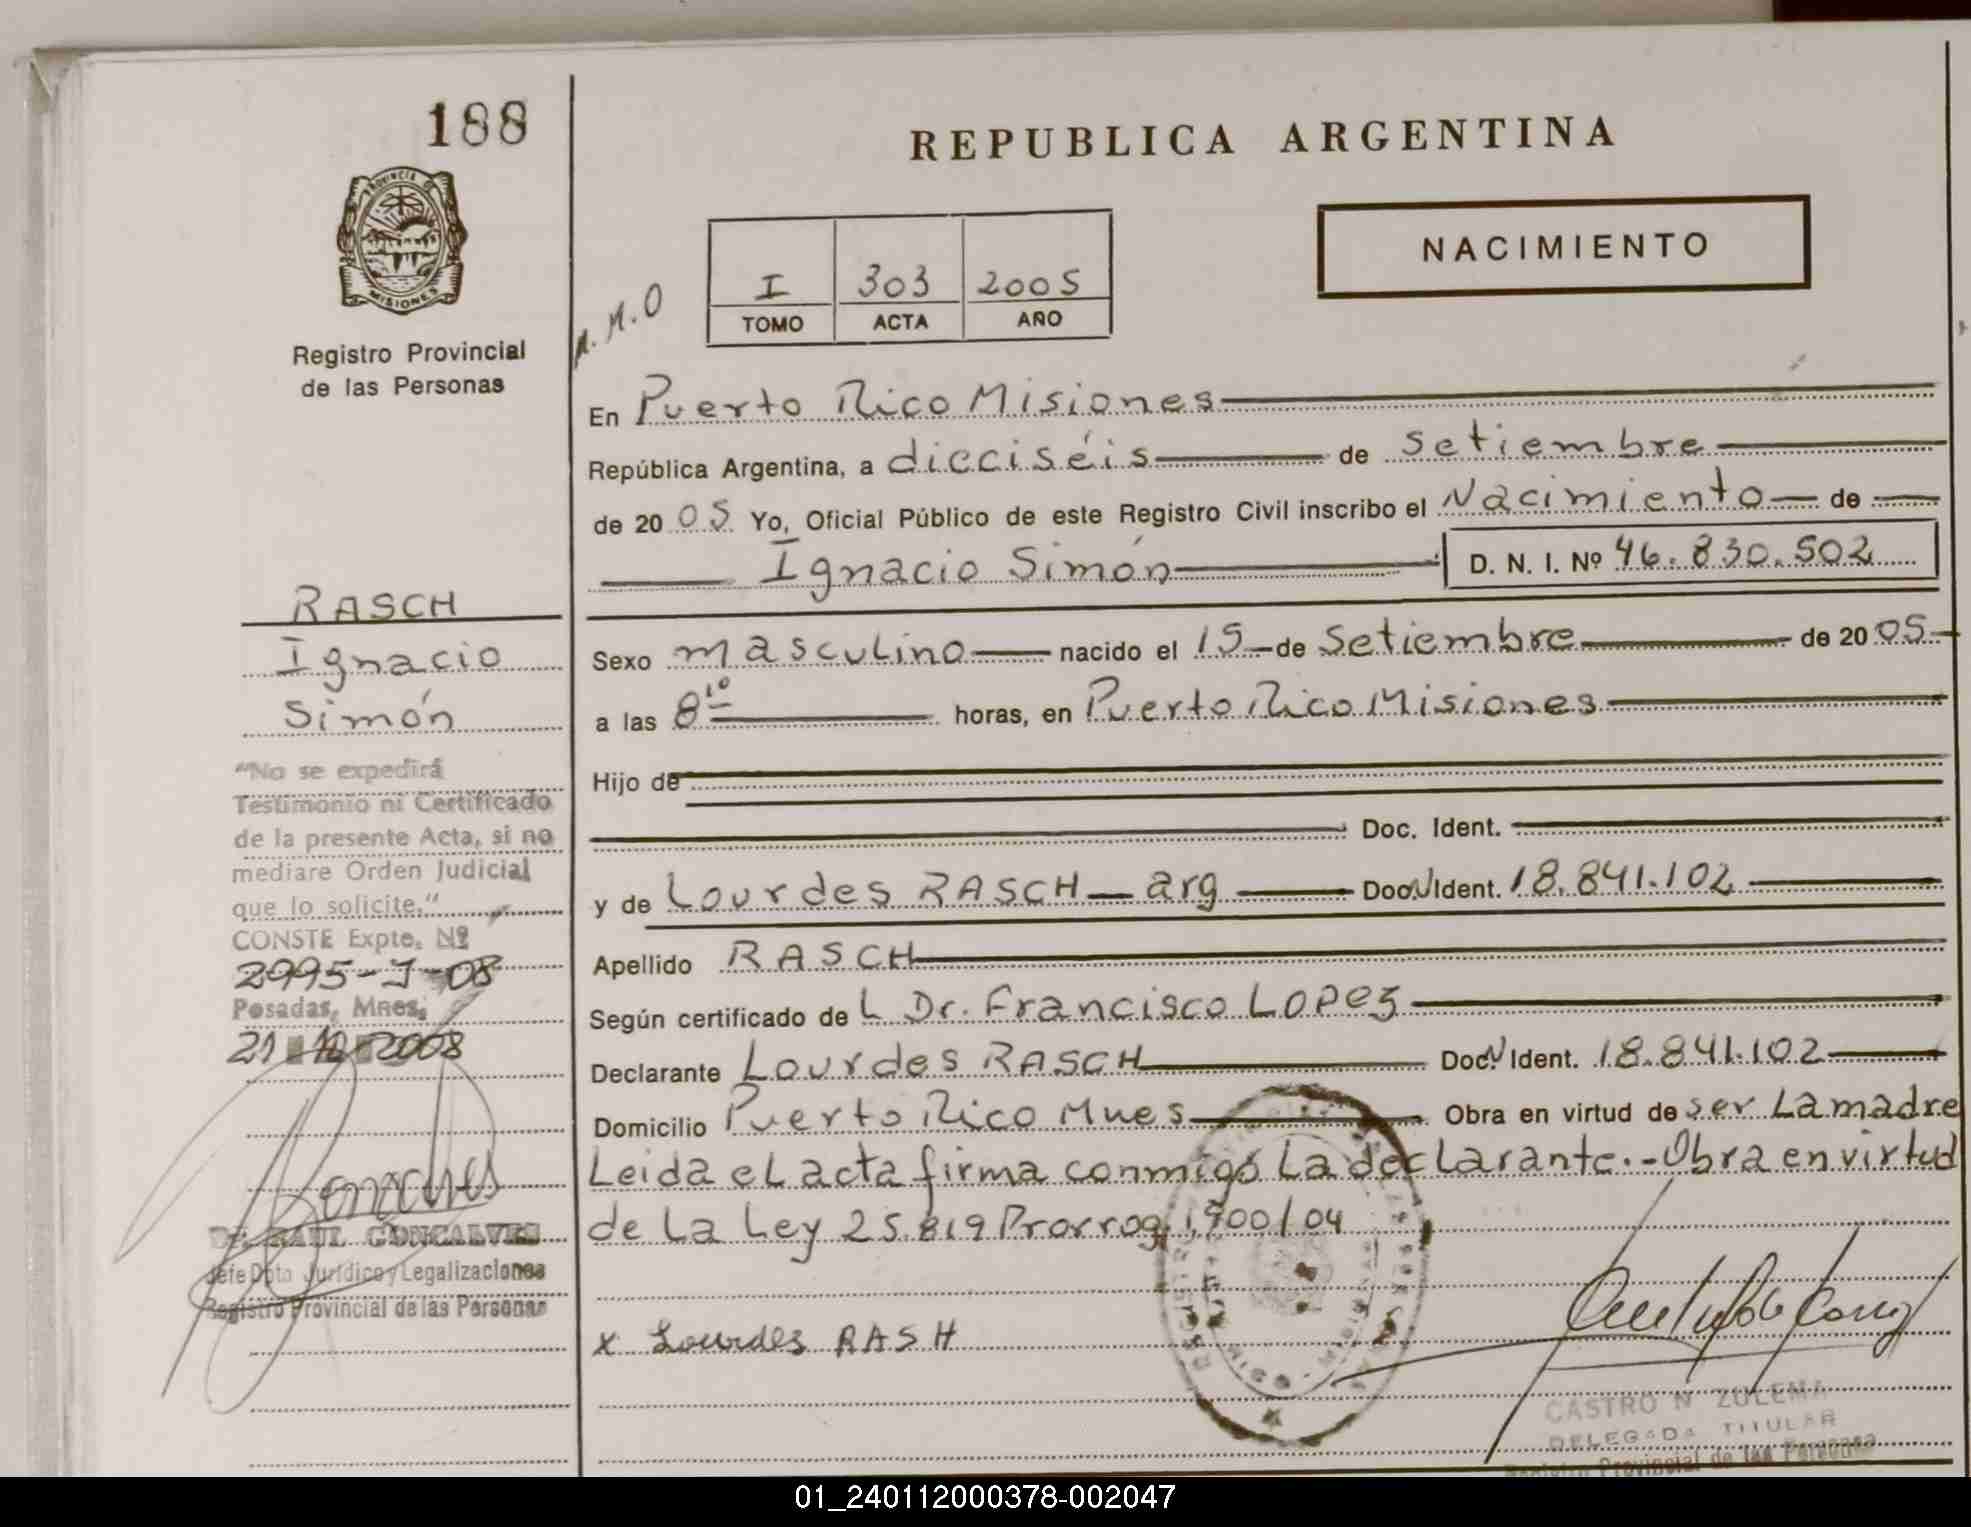 188
REPUBLICA ARGENTINA
PROVINCIA DE
MISIONES
Registro Provincial
de las Personas
I 303 2005
TOMO ACTA AÑO
NACIMIENTO
M.M.O
En Puerto Rico Misiones
República Argentina, a dieciséis de Setiembre
de 20 05 Yo, Oficial Público de este Registro Civil inscribo el Nacimiento de
Ignacio Simón D. N. I. Nº 46.830.502
RASCH
Ignacio
Simón
Sexo masculino nacido el 15 de Setiembre de 20 05
a las 8 10 horas, en Puerto Rico Misiones
Hijo de
Doc. Ident.
y de Lourdes RASCH arg Doc. Ident. 18.841.102
Apellido RASCH
Según certificado de L Dr. Francisco Lopez
Declarante Lourdes RASCH Doc. Ident. 18.841.102
Domicilio Puerto Rico Mnes Obra en virtud de ser La madre
Leida eL acta firma conmigo La decLarante.- Obra en virtud
de La Ley 25.819 Prorrog. 1.900/04
x Lourdes RASH
"No se expedirá
Testimonio ni Certificado
de la presente Acta, si no
mediare Orden Judicial
que lo solicite."
CONSTE Expte. Nº
2995-J-08
Posadas, Mnes;
21 10 2008
Dr. RAUL GONCALVES
Jefe Dpto Jurídico y Legalizaciones
Registro Provincial de las Personas
CASTRO N ZULEMA
DELEGADA TITULAR
Registro Provincial de las Personas
01_240112000378-002047